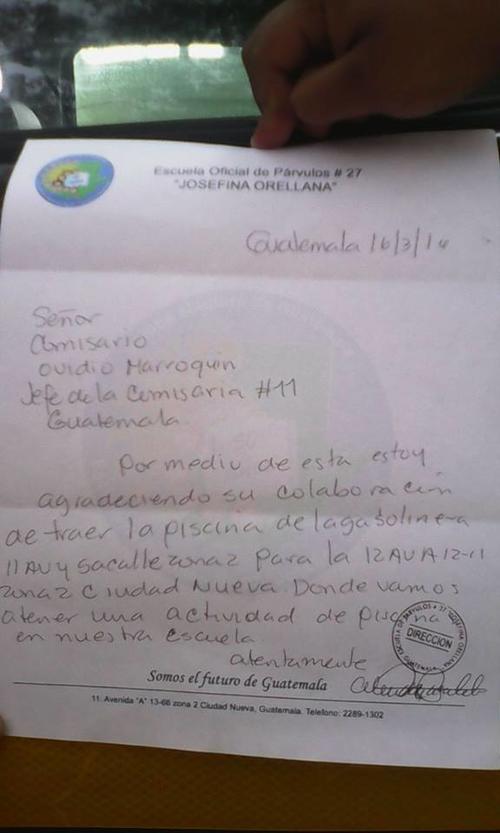 Escuela Oficial de Párvulos # 27
"JOSEFINA ORELLANA"
Guatemala 16/3/14
Señor
Comisario
Ovidio Marroquin
Jefe de la Comisaria #11
Guatemala
Por mediu de esta estoy
agradeciendo su colaboración
de traer la piscina de la gasolinera
11 AV y 5a calle zona 2 para la 12 AV A 12-11
zona 2 Ciudad Nueva. Donde vamos
atener una actividad de piscina
en nuestra escuela.
atentamente
ESCUELA DE PÁRVULOS # 27
DIRECCION
GUATEMALA
Somos el futuro de Guatemala
11. Avenida "A" 13-66 zona 2 Ciudad Nueva, Guatemala. Telefono: 2289-1302